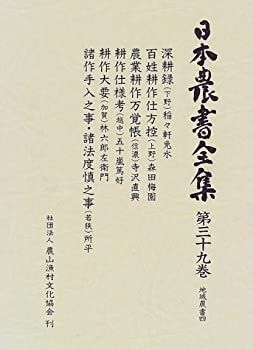 日本農書全集 第三十九巻 地域農書四
深耕録(下野)稲々軒兎水
百姓耕作仕方控(上野)森田梅園
農業耕作万覚帳(信濃)寺沢直興
耕作仕様考(越中)五十嵐篤好
耕作大要(加賀)林六郎左衛門
諸作手入之事・諸法度慎之事(若狭)所平
社団法人 農山漁村文化協会 刊